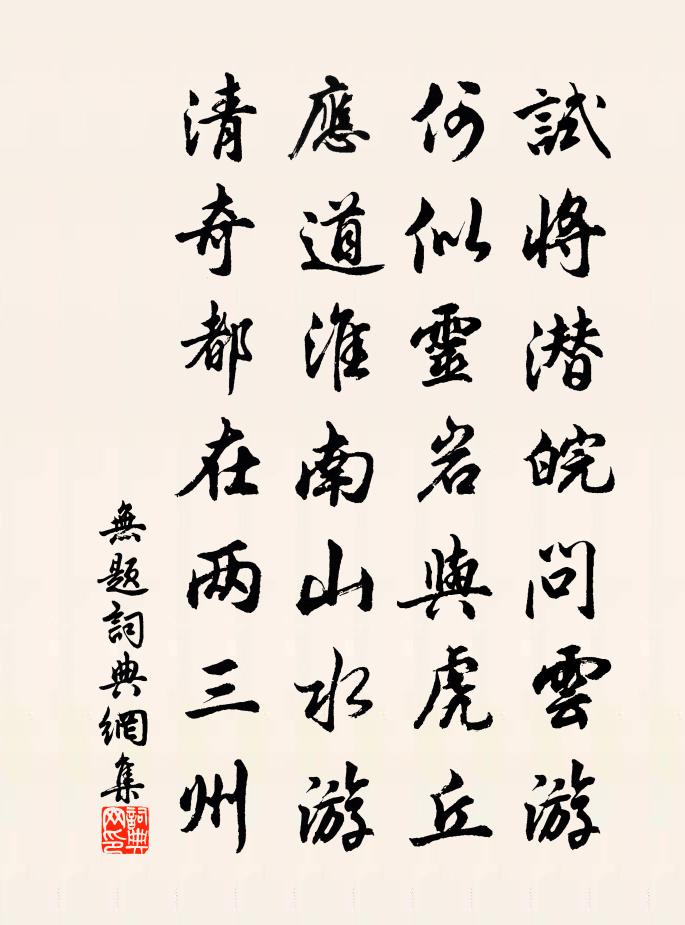 試將潜皖問雲游
何似靈岩與虎丘
應道淮南山水游
清奇都在两三州
無題詞典網集
詞典网印